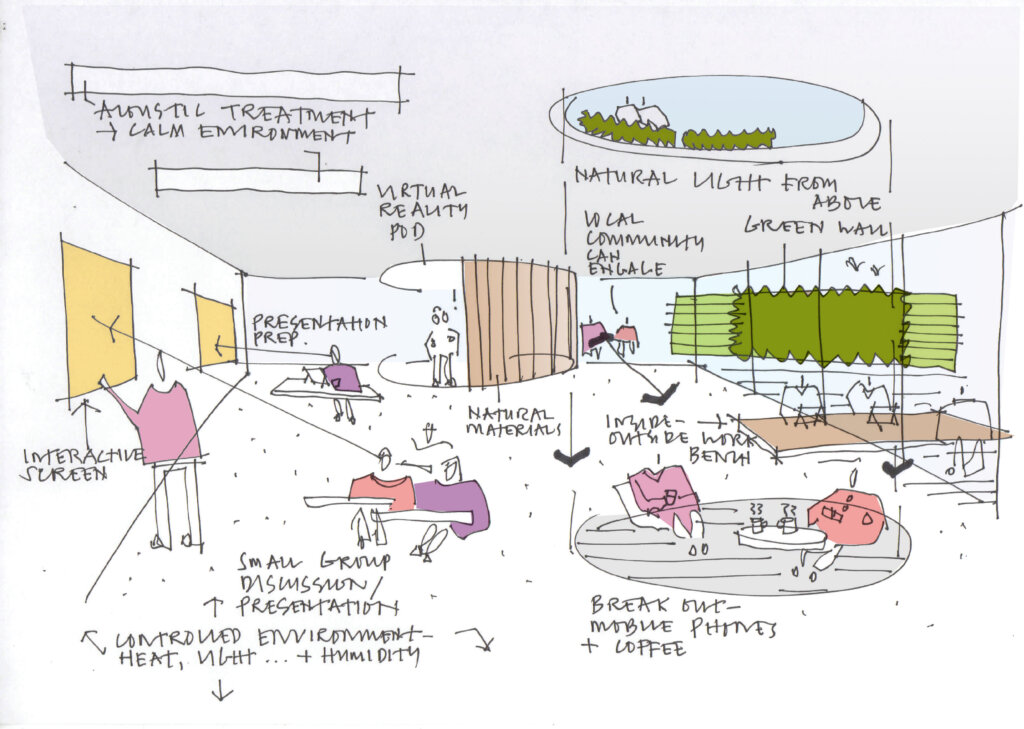 ACOUSTIC TREATMENT
→ CALM ENVIRONMENT
VIRTUAL
REALITY
POD
NATURAL LIGHT FROM
ABOVE
LOCAL
COMMUNITY
CAN
ENGAGE
GREEN WALL
PRESENTATION
PREP.
INTERACTIVE
SCREEN
NATURAL
MATERIALS
INSIDE-
OUTSIDE WORK
BENCH
SMALL GROUP
DISCUSSION/
PRESENTATION
CONTROLLED ENVIRONMENT-
HEAT, LIGHT ... + HUMIDITY
BREAK OUT-
MOBILE PHONES
+ COFFEE